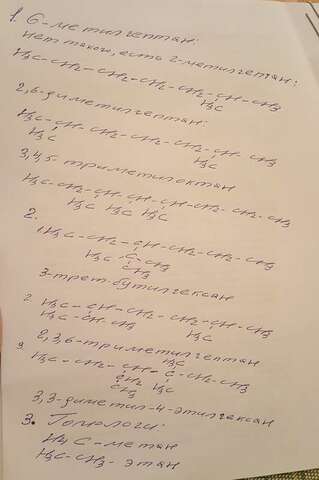 1. 6-метилгептан:
Нет такого, есть 2-метилгептан:
H₃C-CH₂-CH₂-CH₂-CH₂-CH-CH₃
H₃C
2,6-диметилгептан:
H₃C-CH-CH₂-CH₂-CH₂-CH-CH₃
H₃C H₃C
3,4,5-триметилоктан
H₃C-CH₂-CH-CH-CH-CH₂-CH₂-CH₃
H₃C H₃C H₃C
2.
1 H₃C-CH₂-CH-CH₂-CH₂-CH₃
H₃C-C-CH₃
CH₃
3-трет-бутилгексан
2 H₃C-CH-CH₂-CH₂-CH-CH₃
H₃C-CH-CH₃ H₃C
2,3,6-триметилгептан
H₃C
3 H₃C-CH₂-CH-C-CH₂-CH₃
CH₂ H₃C
CH₃
3,3-диметил-4-этилгексан
3. Гомологи:
H₄C-метан
H₃C-CH₃-этан